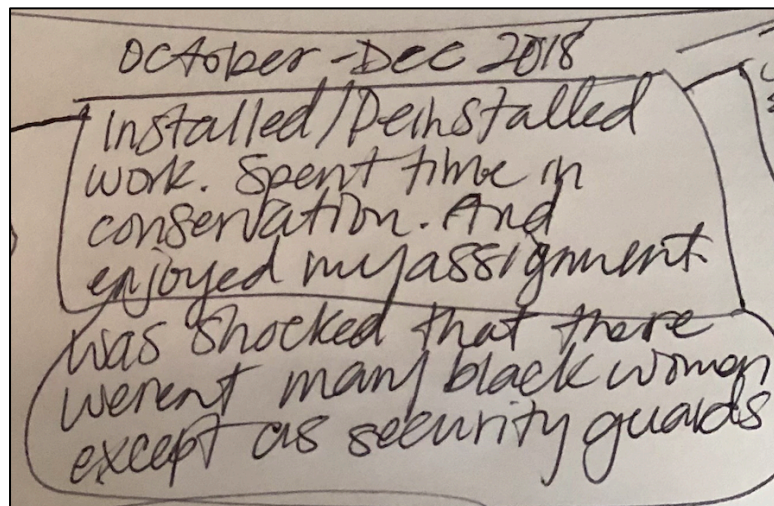 October - Dec 2018
Installed/Deinstalled
work. Spent time in
conservation. And
enjoyed my assignment.
was shocked that there
werent many black women
except as security guards